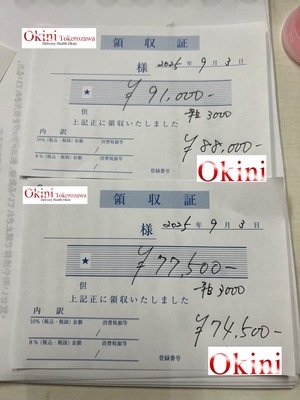 Okini Tokorozawa
Delivery Health Okini
領収証
様 2025年9月3日
★ ¥91,000-
但 3000
上記正に領収いたしました
内訳
10%(税込・税抜)金額 消費税額等
8%(税込・税抜)金額 消費税額等
登録番号
¥88,000-
Okini
Okini Tokorozawa
Delivery Health Okini
領収証
様 2025年9月3日
★ ¥77,500-
但 3000
上記正に領収いたしました
内訳
10%(税込・税抜)金額 消費税額等
8%(税込・税抜)金額 消費税額等
登録番号
¥74,500-
Okini